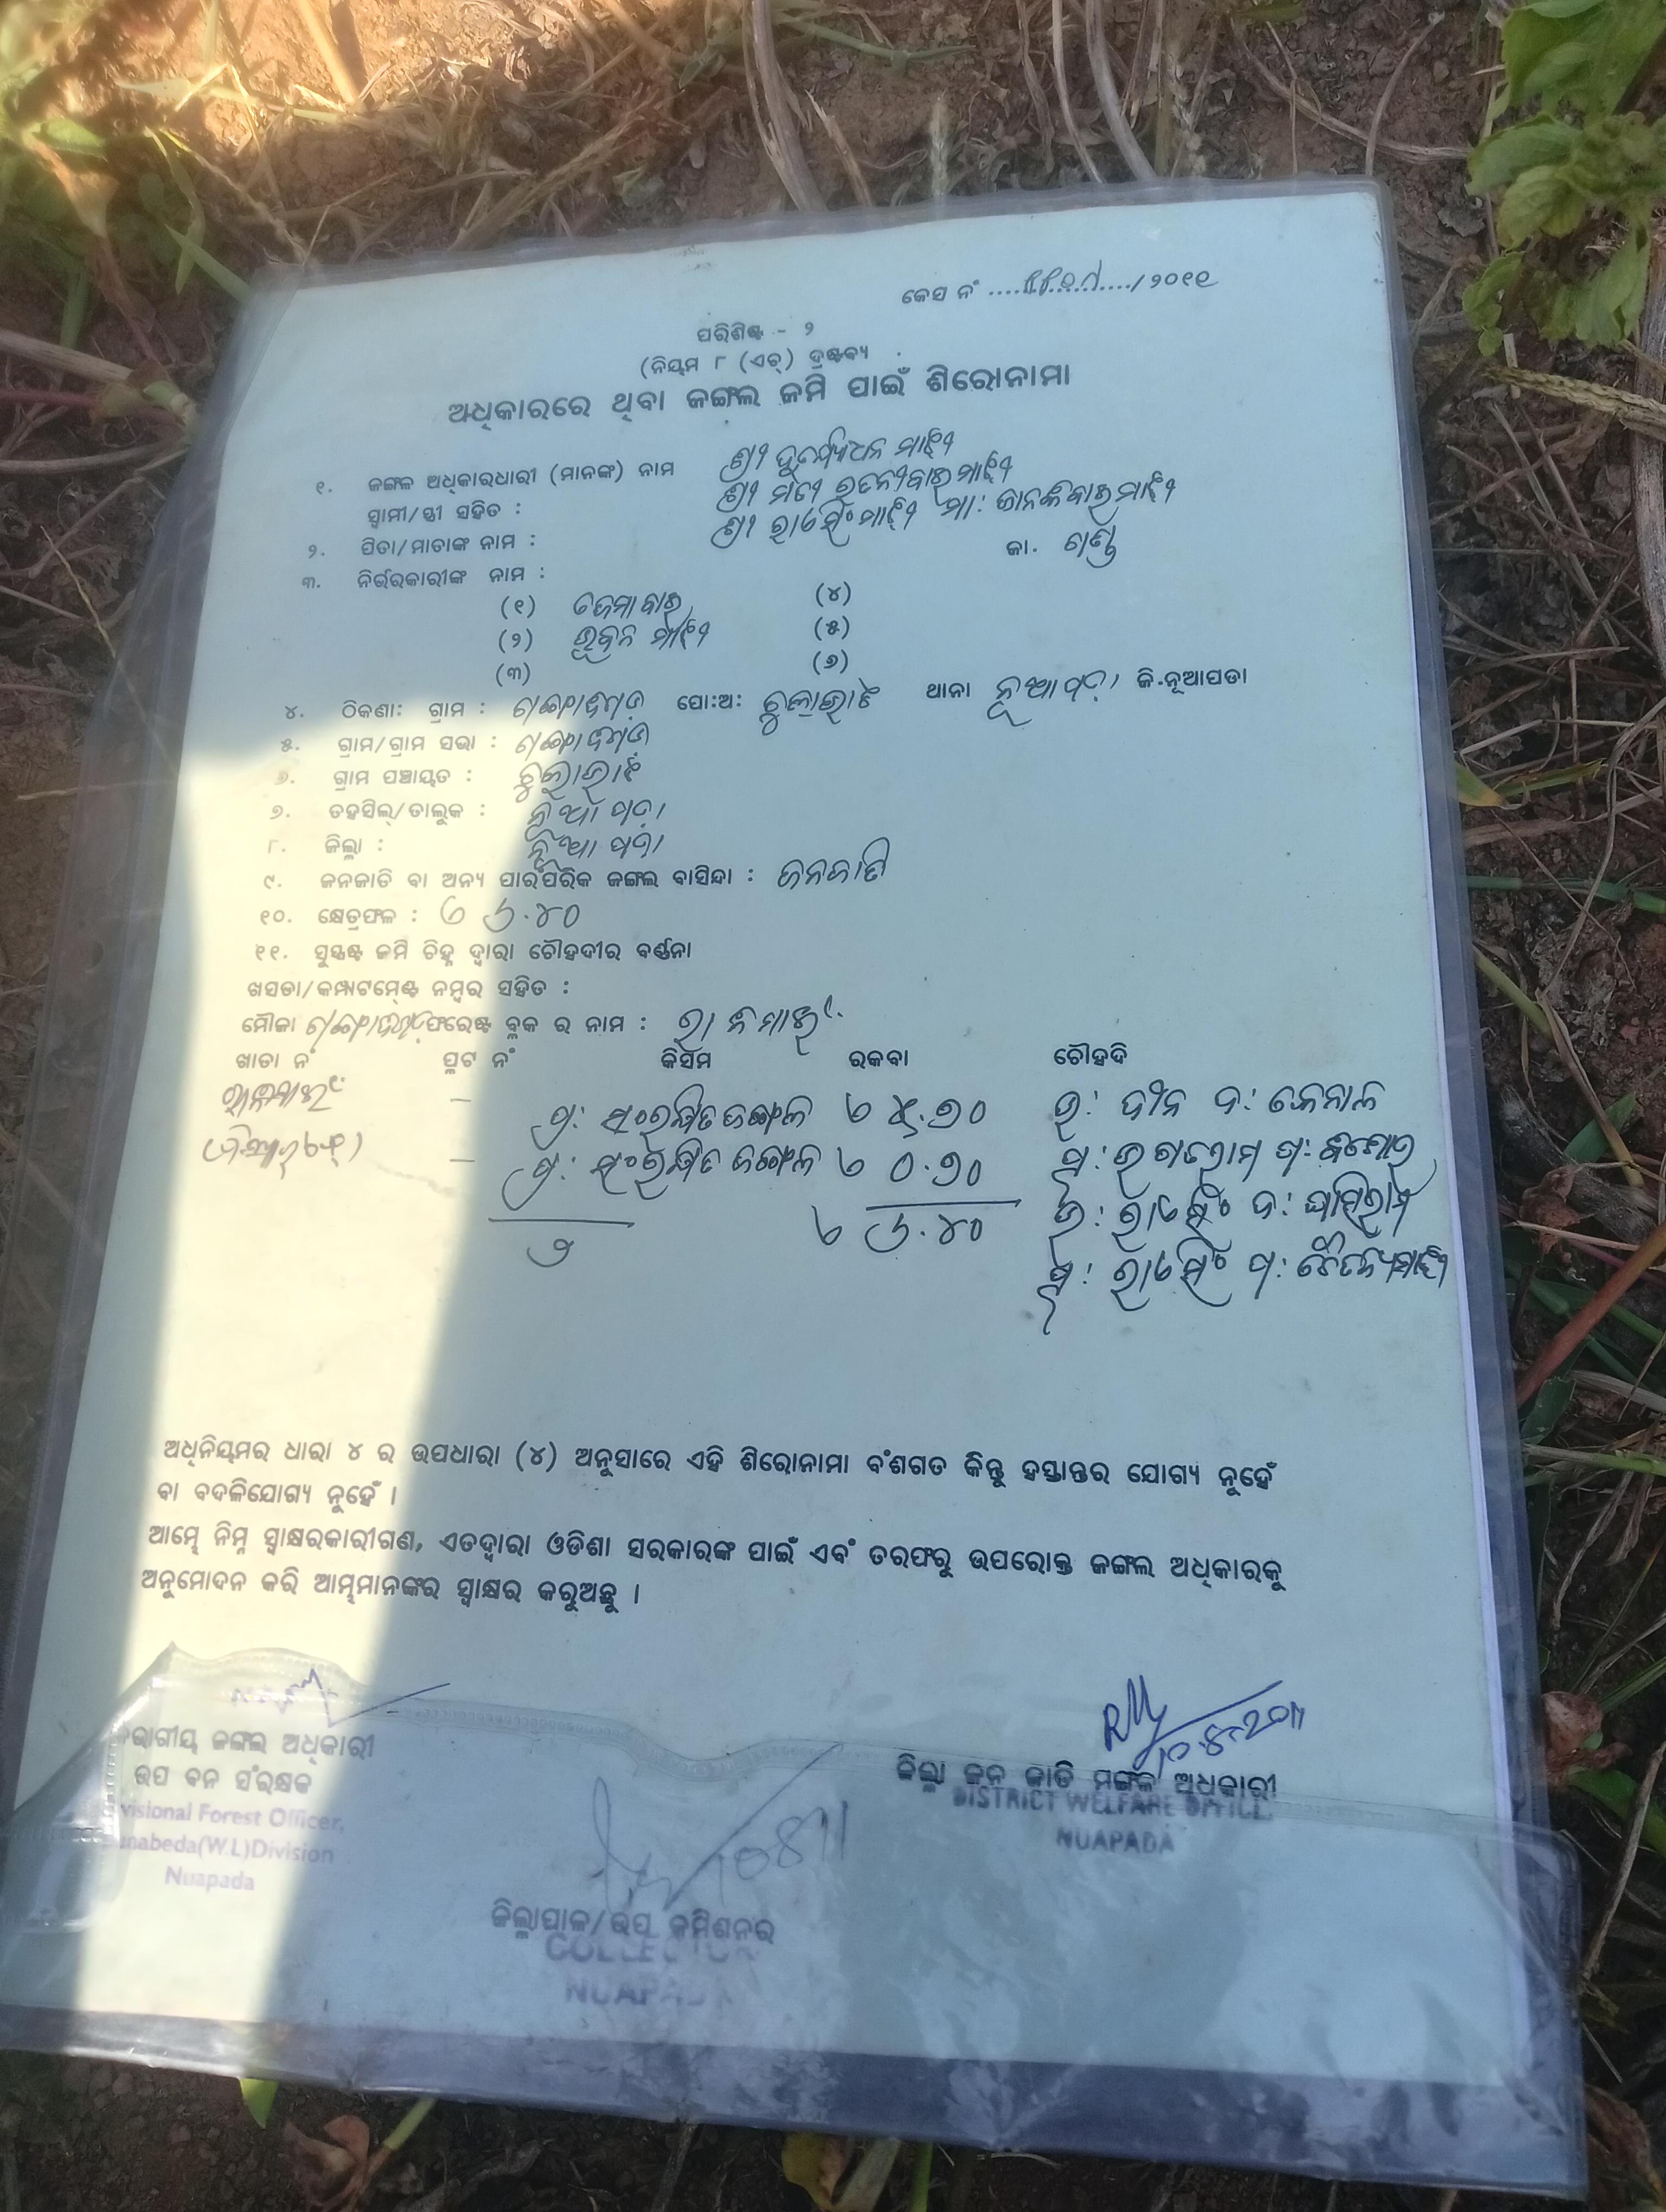 କେସ ନଂ ..................../୨୦୧୧
ପରିଶିଷ୍ଟ - ୨
(ନିୟମ ୮ (ଏଚ୍) ଦ୍ରଷ୍ଟବ୍ୟ
ଅଧିକାରରେ ଥିବା ଜଙ୍ଗଲ ଜମି ପାଇଁ ଶିରୋନାମା
୧. ଜଙ୍ଗଲ ଅଧିକାରଧାରୀ (ମାନଙ୍କ) ନାମ ଶ୍ରୀ ଦୁର୍ଯ୍ୟୋଧନ ମାଝୀ
ସ୍ୱାମୀ/ସ୍ତ୍ରୀ ସହିତ : ଶ୍ରୀମତୀ ମାଝୀ
୨. ପିତା/ମାତାଙ୍କ ନାମ : ଶ୍ରୀ ରାଏସିଂ ମାଝୀ ମା: ଜାନକିବାଇ ମାଝୀ
ଜା. ଗଣ୍ଡ
୩. ନିର୍ଭରକାରୀଙ୍କ ନାମ :
(୧) ହେମବାଇ (୪)
(୨) ଭୁବନ ମାଝୀ (୫)
(୩) (୬)
୪. ଠିକଣା: ଗ୍ରାମ : ପୋ:ଅ: ଥାନା ନୂଆପଡ଼ା ଜି.ନୂଆପଡା
୫. ଗ୍ରାମ/ଗ୍ରାମ ସଭା :
୬. ଗ୍ରାମ ପଞ୍ଚାୟତ :
୭. ତହସିଲ୍/ତାଲୁକ : ନୂଆପଡ଼ା
୮. ଜିଲ୍ଲା : ନୂଆପଡ଼ା
୯. ଜନଜାତି ବା ଅନ୍ୟ ପାରଂପରିକ ଜଙ୍ଗଲ ବାସିନ୍ଦା : ଜନଜାତି
୧୦. କ୍ଷେତ୍ରଫଳ : ୬.୪୦
୧୧. ସୁସ୍ପଷ୍ଟ ଜମି ଚିହ୍ନ ଦ୍ୱାରା ଚୌହଦୀର ବର୍ଣ୍ଣନା
ଖସଡା/କମ୍ପାଟମେଣ୍ଟ ନମ୍ବର ସହିତ :
ମୌଜା ଫରେଷ୍ଟ ବ୍ଲକ ର ନାମ : ରାନିମାଇ
ଖାତା ନଂ ପ୍ଲଟ ନଂ କିସମ ରକବା ଚୌହଦି
— ପ୍ର: ସଂରକ୍ଷିତ ଜଙ୍ଗଲ ୫.୭୦ ଉ: ଦ: କେନାଲ
— ପ୍ର: ସଂରକ୍ଷିତ ଜଙ୍ଗଲ ୦.୭୦ ପୂ: ପ:
୨ ୬.୪୦ ଉ: ରାଏସିଂ ଦ: ଘାସିରାମ
ପୂ: ରାଏସିଂ ପ: ଚୈତନ୍ୟ ମାଝୀ
ଅଧିନିୟମର ଧାରା ୪ ର ଉପଧାରା (୪) ଅନୁସାରେ ଏହି ଶିରୋନାମା ବଂଶଗତ କିନ୍ତୁ ହସ୍ତାନ୍ତର ଯୋଗ୍ୟ ନୁହେଁ
ବା ବଦଳିଯୋଗ୍ୟ ନୁହେଁ ।
ଆମ୍ଭେ ନିମ୍ନ ସ୍ୱାକ୍ଷରକାରୀଗଣ, ଏତଦ୍ୱାରା ଓଡିଶା ସରକାରଙ୍କ ପାଇଁ ଏବଂ ତରଫରୁ ଉପରୋକ୍ତ ଜଙ୍ଗଲ ଅଧିକାରକୁ
ଅନୁମୋଦନ କରି ଆମ୍ଭମାନଙ୍କର ସ୍ୱାକ୍ଷର କରୁଅଛୁ ।
10.8.2011
ଭାଗୀୟ ଜଙ୍ଗଲ ଅଧିକାରୀ
ଉପ ବନ ସଂରକ୍ଷକ
visional Forest Officer,
unabeda(W.L)Division
Nuapada
ଜିଲ୍ଲା ଜନ ଜାତି ମଙ୍ଗଳ ଅଧିକାରୀ
DISTRICT WELFARE OFFICE
NUAPADA
10811
ଜିଲ୍ଲାପାଳ/ଉପ କମିଶନର
COLLECTOR
NUAPADA